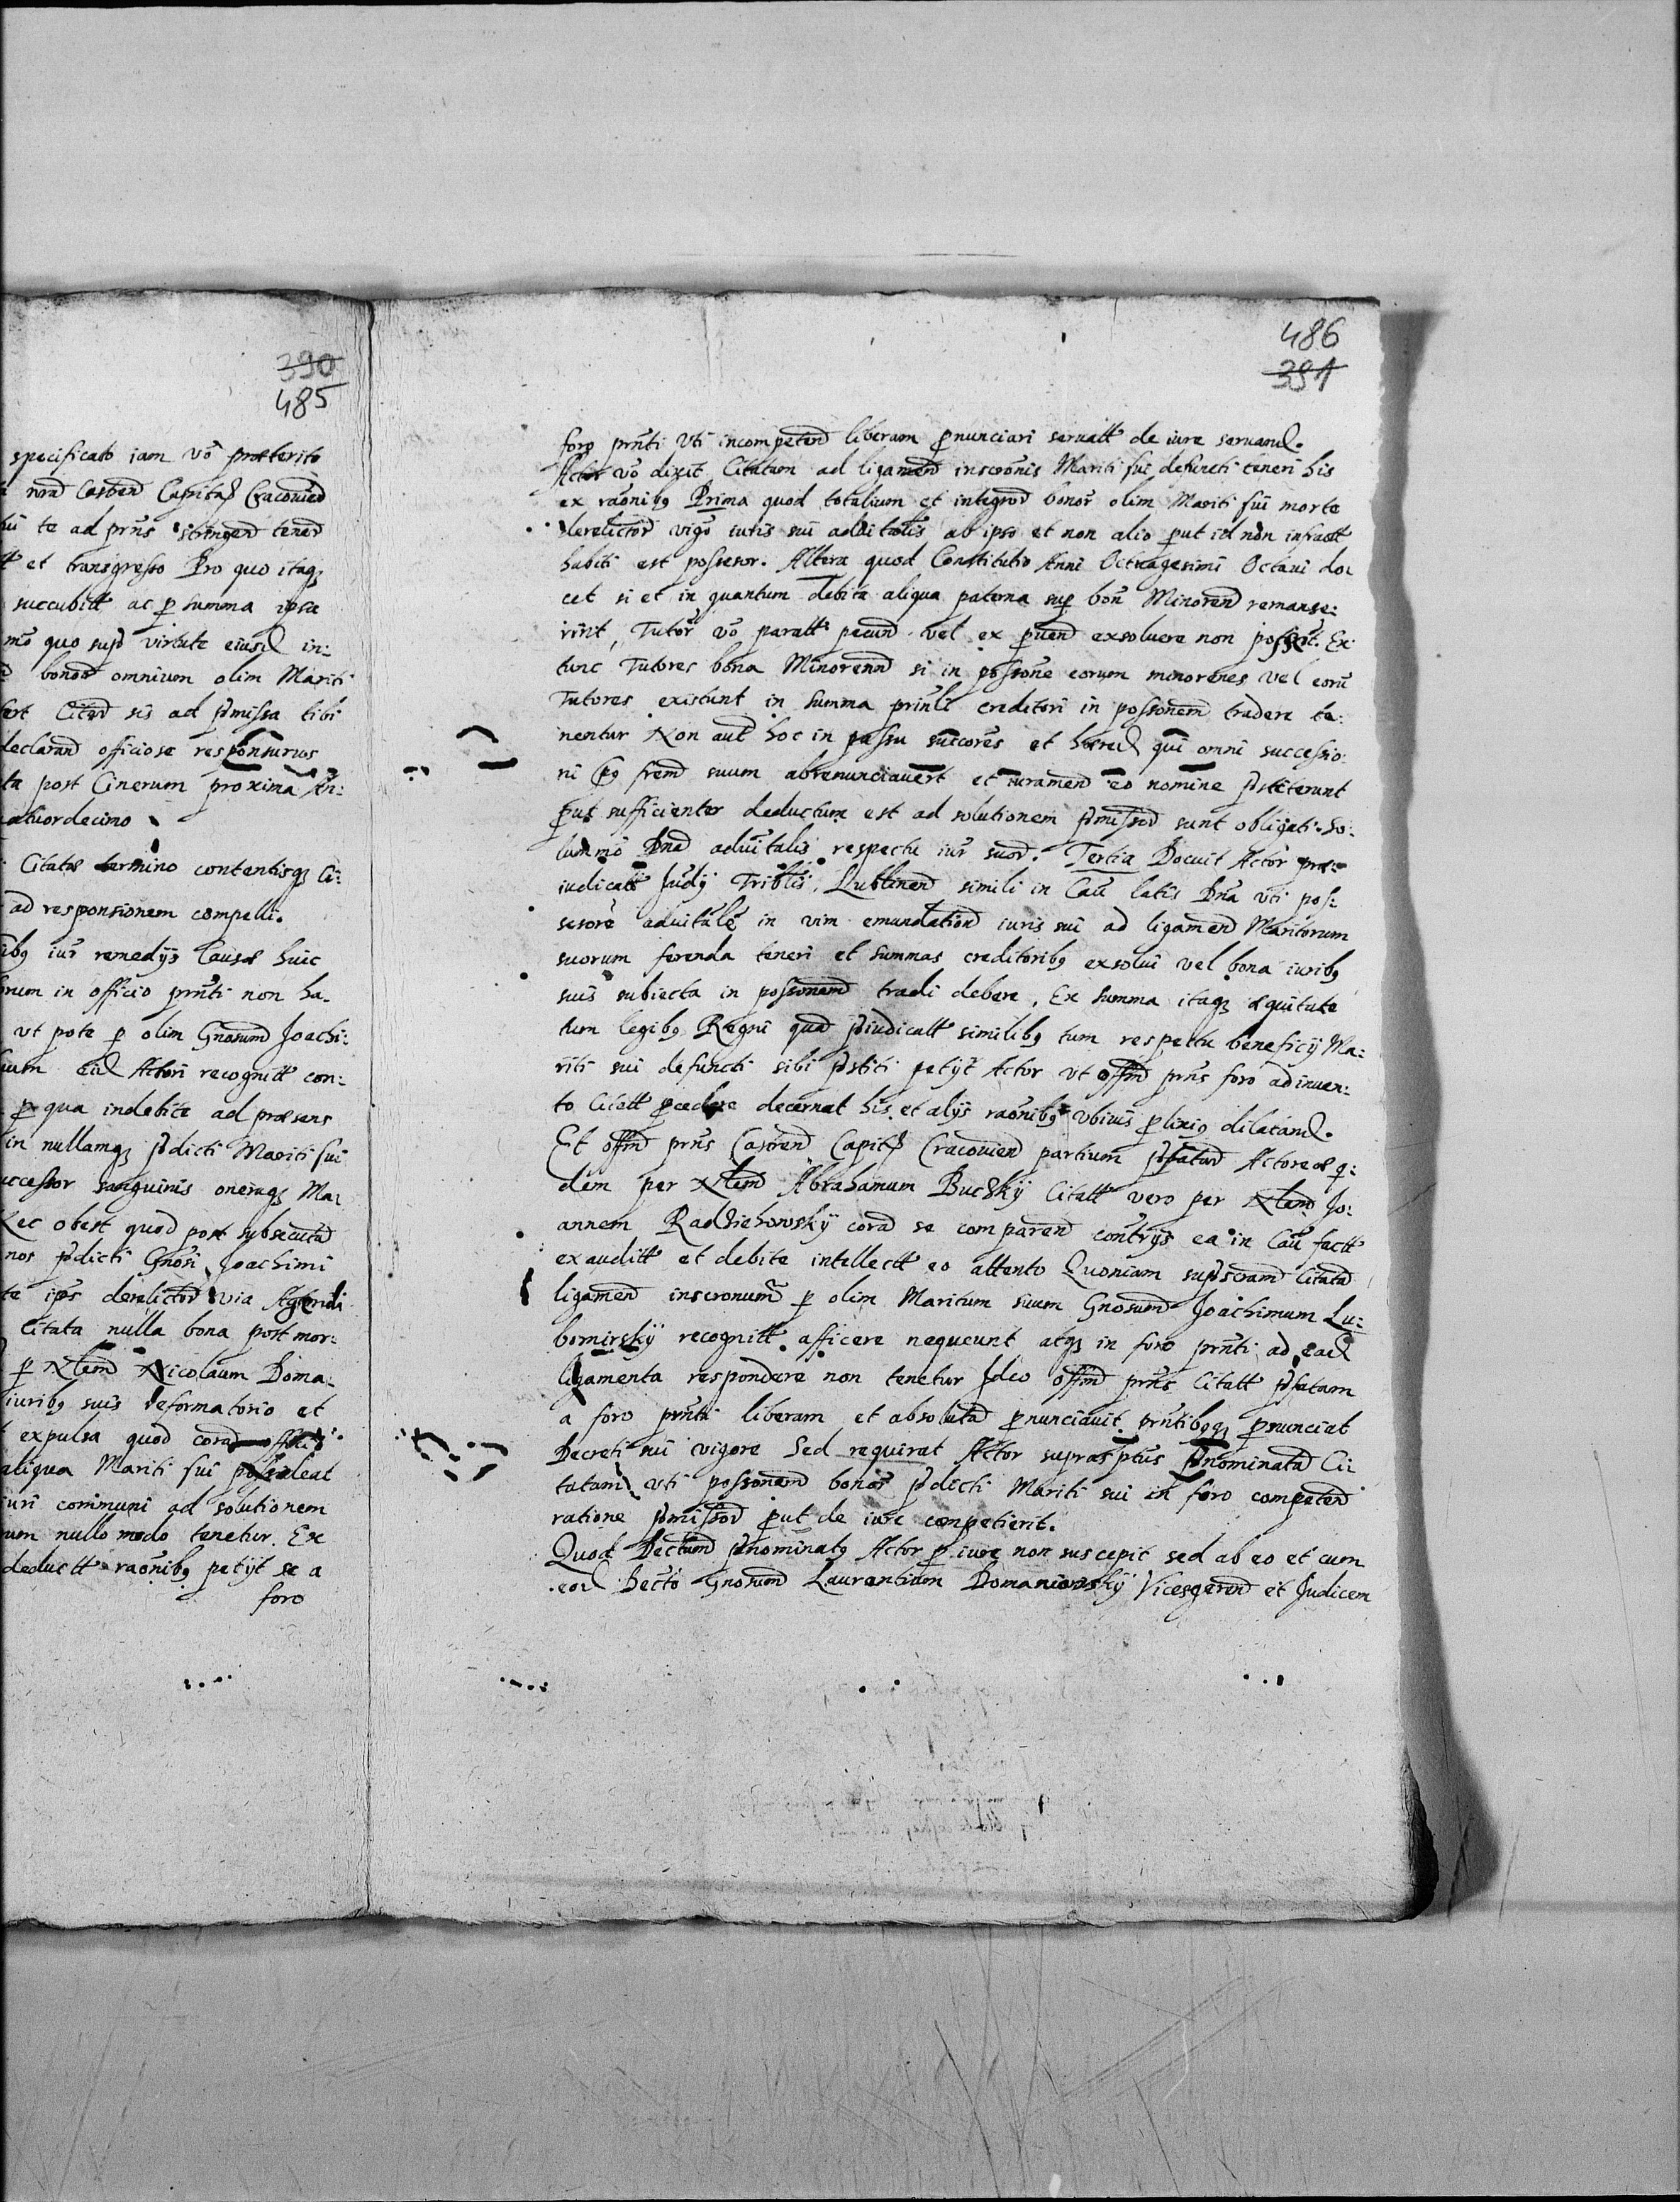 390
485
specificato iam vo præterito
Capitan Cracovien
te ad prns stringen tenen
et transgresso Pro quo itaq
succubitt ac p summa ipsa
mo quo supd virtute eiusd in:
bonor omnium olim Mariti
Citan sis ad pmissa tibi
declarand officiose responsurus
ta post Cinerum proxima An:
atuordecimo
Citatæ termino contentisq Ci:
ad responsionem compelli.
ibq iur remedijs Causæ huic
rum in officio prnti non ha-
vt pote p olim Gnosum Joachi:
eid Actori recognitt con:
p qua indebite ad præsens
in nullamq pdicti Mariti sui
uccessor sanguinis onerisq Ma-
Nec obest quod post subsecutam
nos pdicti Gnosi Joachimi
te ips derelictor via Agendi
Citata nulla bona post mor:
p Nlem Nicolaum Doma-
iuribq suis reformatorio et
expulsa quod coram
aliqua Mariti sui possideat
iuri communi ad solutionem
um nullo modo tenetur. Ex
deductt raonibq petijt se a
foro
486
391
foro prnti vti incompeten liberam pnunciari servatt de iure servand.
Actor vo dixit Citatam ad ligamen inscronis Mariti sui defuncti teneri his
ex raonibq Prima quod totalium et integror bonor olim Mariti sui morte
derelictor vigo iuris sui advitalis ab ipso et non alio put id non
habiti est possesor. Altera quod Constitutio Anni Octuagesimi Octavi do-
cet si et in quantum debita aliqua paterna sup bon Minoren remanse:
rint, Tutor vo paratt pecun vel ex pven exsolvere non possent. Ex
tunc Tutores bona Minorenn si in possone eorum minorenes vel eoru
Tutores existunt in summa prinli creditori in possonem tradere te:
nentur Non aut hoc in passu succores et hæred qui omni successio:
ni frem suum abrenunciavert et iuramen eo nomine pstiterunt
put sufficienter deductum est ad solutionem pmissor sunt obligati. So:
lummo Dna advitalis respectu iur suor. Tertia Docuit Actor præ-
iudicatt Judy Triblis Lublinen simili in Cau latis Dna vti pos:
sesore advitale in vim emundation iuris sui ad ligamen Maritorum
suorum ferenda teneri et summas creditoribq exsolui vel bona iuribq
suis subiecta in possonem tradi debere. Ex summa itaq æquitate
tum legibq Regni quam piudicatt similibq tum respectu beneficij Ma:
riti sui defuncti sibi pstiti petijt Actor vt offm prns foro adinven:
to Citatt pcedere decernat his et alijs raonibq vbivis plixiq dilatand.
Et offm prns Castren Capit Cracovien partium pfatar Actoreæ q:
dem per Nlem Abrahamum Bucsky Citatt vero per Nlem Jo:
annem Radziehowsky coram se comparen contrijs ea in Cau factt
exauditt et debite intellectt eo attento Quoniam supscram Citatam
ligamen inscronum p olim Maritum suum Gnosum Joachimum Lu:
bomirsky recognitt afficere nequeunt atq in foro prnti ad ead
ligamenta respondere non tenetur Ideo offm prns Citatt pfatam
a foro prnti liberam et absolutam pnunciavit prntibqq pnunciat
Decreti sui vigore Sed requirat Actor suprasptus pnominatam Ci:
tatam vti possonem bonor pdicti Mariti sui in foro competen
ratione pmissor put de iure competierit.
Quod Dectum pnominatq Actor p iure non suscepit sed ab eo et cum
eod Decto Gnosum Laurentium Domaniowsky Vicesgeren et Judicem